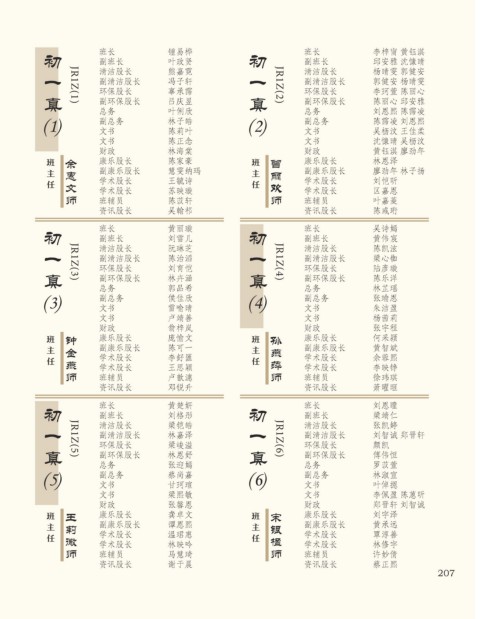 初一真(1)
JR1Z(1)
班主任
余惠文师
班长 鍾易桦
副班长 叶政贤
清洁股长 熊嘉霓
副清洁股长 冯子轩
环保股长 辜承霈
副环保股长 吕庆昱
总务 叶俐欣
副总务 林子皓
文书 陈莉叶
文书 陈正念
财政 林海棠
康乐股长 陈家豪
副康乐股长
学术股长 王毓诗
学术股长 苏映璇
班辅员 陈苡轩
资讯股长 吴翰彬
初一真(2)
JR1Z(2)
班主任
班长 李梓甯 黄钰淇
副班长 邱安雅 沈慷靖
清洁股长 杨靖雯 郭健安
副清洁股长 郭健安 杨靖雯
环保股长 李珂萱 陈丽心
副环保股长 陈丽心 邱安雅
总务 刘恩熙 陈霈凌
副总务 陈霈凌 刘恩熙
文书 吴杨汶 王佳柔
文书 沈慷靖 吴杨汶
财政 黄钰淇 廖劲年
康乐股长 林恩泽
副康乐股长 廖劲年 林子扬
学术股长 刘恺昕
学术股长 区嘉恩
班辅员 叶嘉蔓
资讯股长 陈彧珩
初一真(3)
JR1Z(3)
班主任
钟金燕师
班长 黄丽璇
副班长 刘雪儿
清洁股长 阮琳芝
副清洁股长 陈治滔
环保股长 刘育恺
副环保股长 林卉涵
总务 郭品希
副总务 侯佳欣
文书 雷喻晴
文书 卢靖善
财政 俞梓岚
康乐股长 庞愉文
副康乐股长 陈可一
学术股长 李好匯
学术股长 王思颖
班辅员 卢歆潓
资讯股长 邓悦升
初一真(4)
JR1Z(4)
班主任
孙燕萍师
班长 吴诗嫣
副班长 黄传宸
清洁股长 陈凯波
副清洁股长 梁心伽
环保股长 陆彦璇
副环保股长 陈乐洋
总务 林芷瑶
副总务 张晴恩
文书 朱洁盈
文书 杨茜莉
财政 张宇程
康乐股长 何承颖
副康乐股长 黄智斌
学术股长 余蓉熙
学术股长 李映铮
班辅员 徐玮琪
资讯股长 萧曜煊
初一真(5)
JR1Z(5)
班主任
王莉薇师
班长 黄楚妍
副班长 刘格彤
清洁股长 梁铠皓
副清洁股长 林嘉泽
环保股长 梁峻溢
副环保股长 林恩妤
总务 张迎嫣
副总务 蔡尚嘉
文书 甘珂瑄
文书 梁熙敏
财政 张馨恩
康乐股长 龚卓文
副康乐股长 谭恩熙
学术股长 温珺惠
学术股长 林映吟
班辅员 马慧琦
资讯股长 谢子晨
初一真(6)
JR1Z(6)
班主任
班长 刘恩瞳
副班长 梁靖仁
清洁股长 张凯婷
副清洁股长 刘智诚 郑晋轩
环保股长 颜凯
副环保股长 傅伟恒
总务 罗苡萱
副总务 林淑宣
文书 叶倬摁
文书 李佩盈 陈蕙昕
财政 郑晋轩 刘智诚
康乐股长 刘宇泽
副康乐股长 黄承远
学术股长 覃淳善
学术股长 林倄宇
班辅员 许妙倩
资讯股长 蔡正熙
207